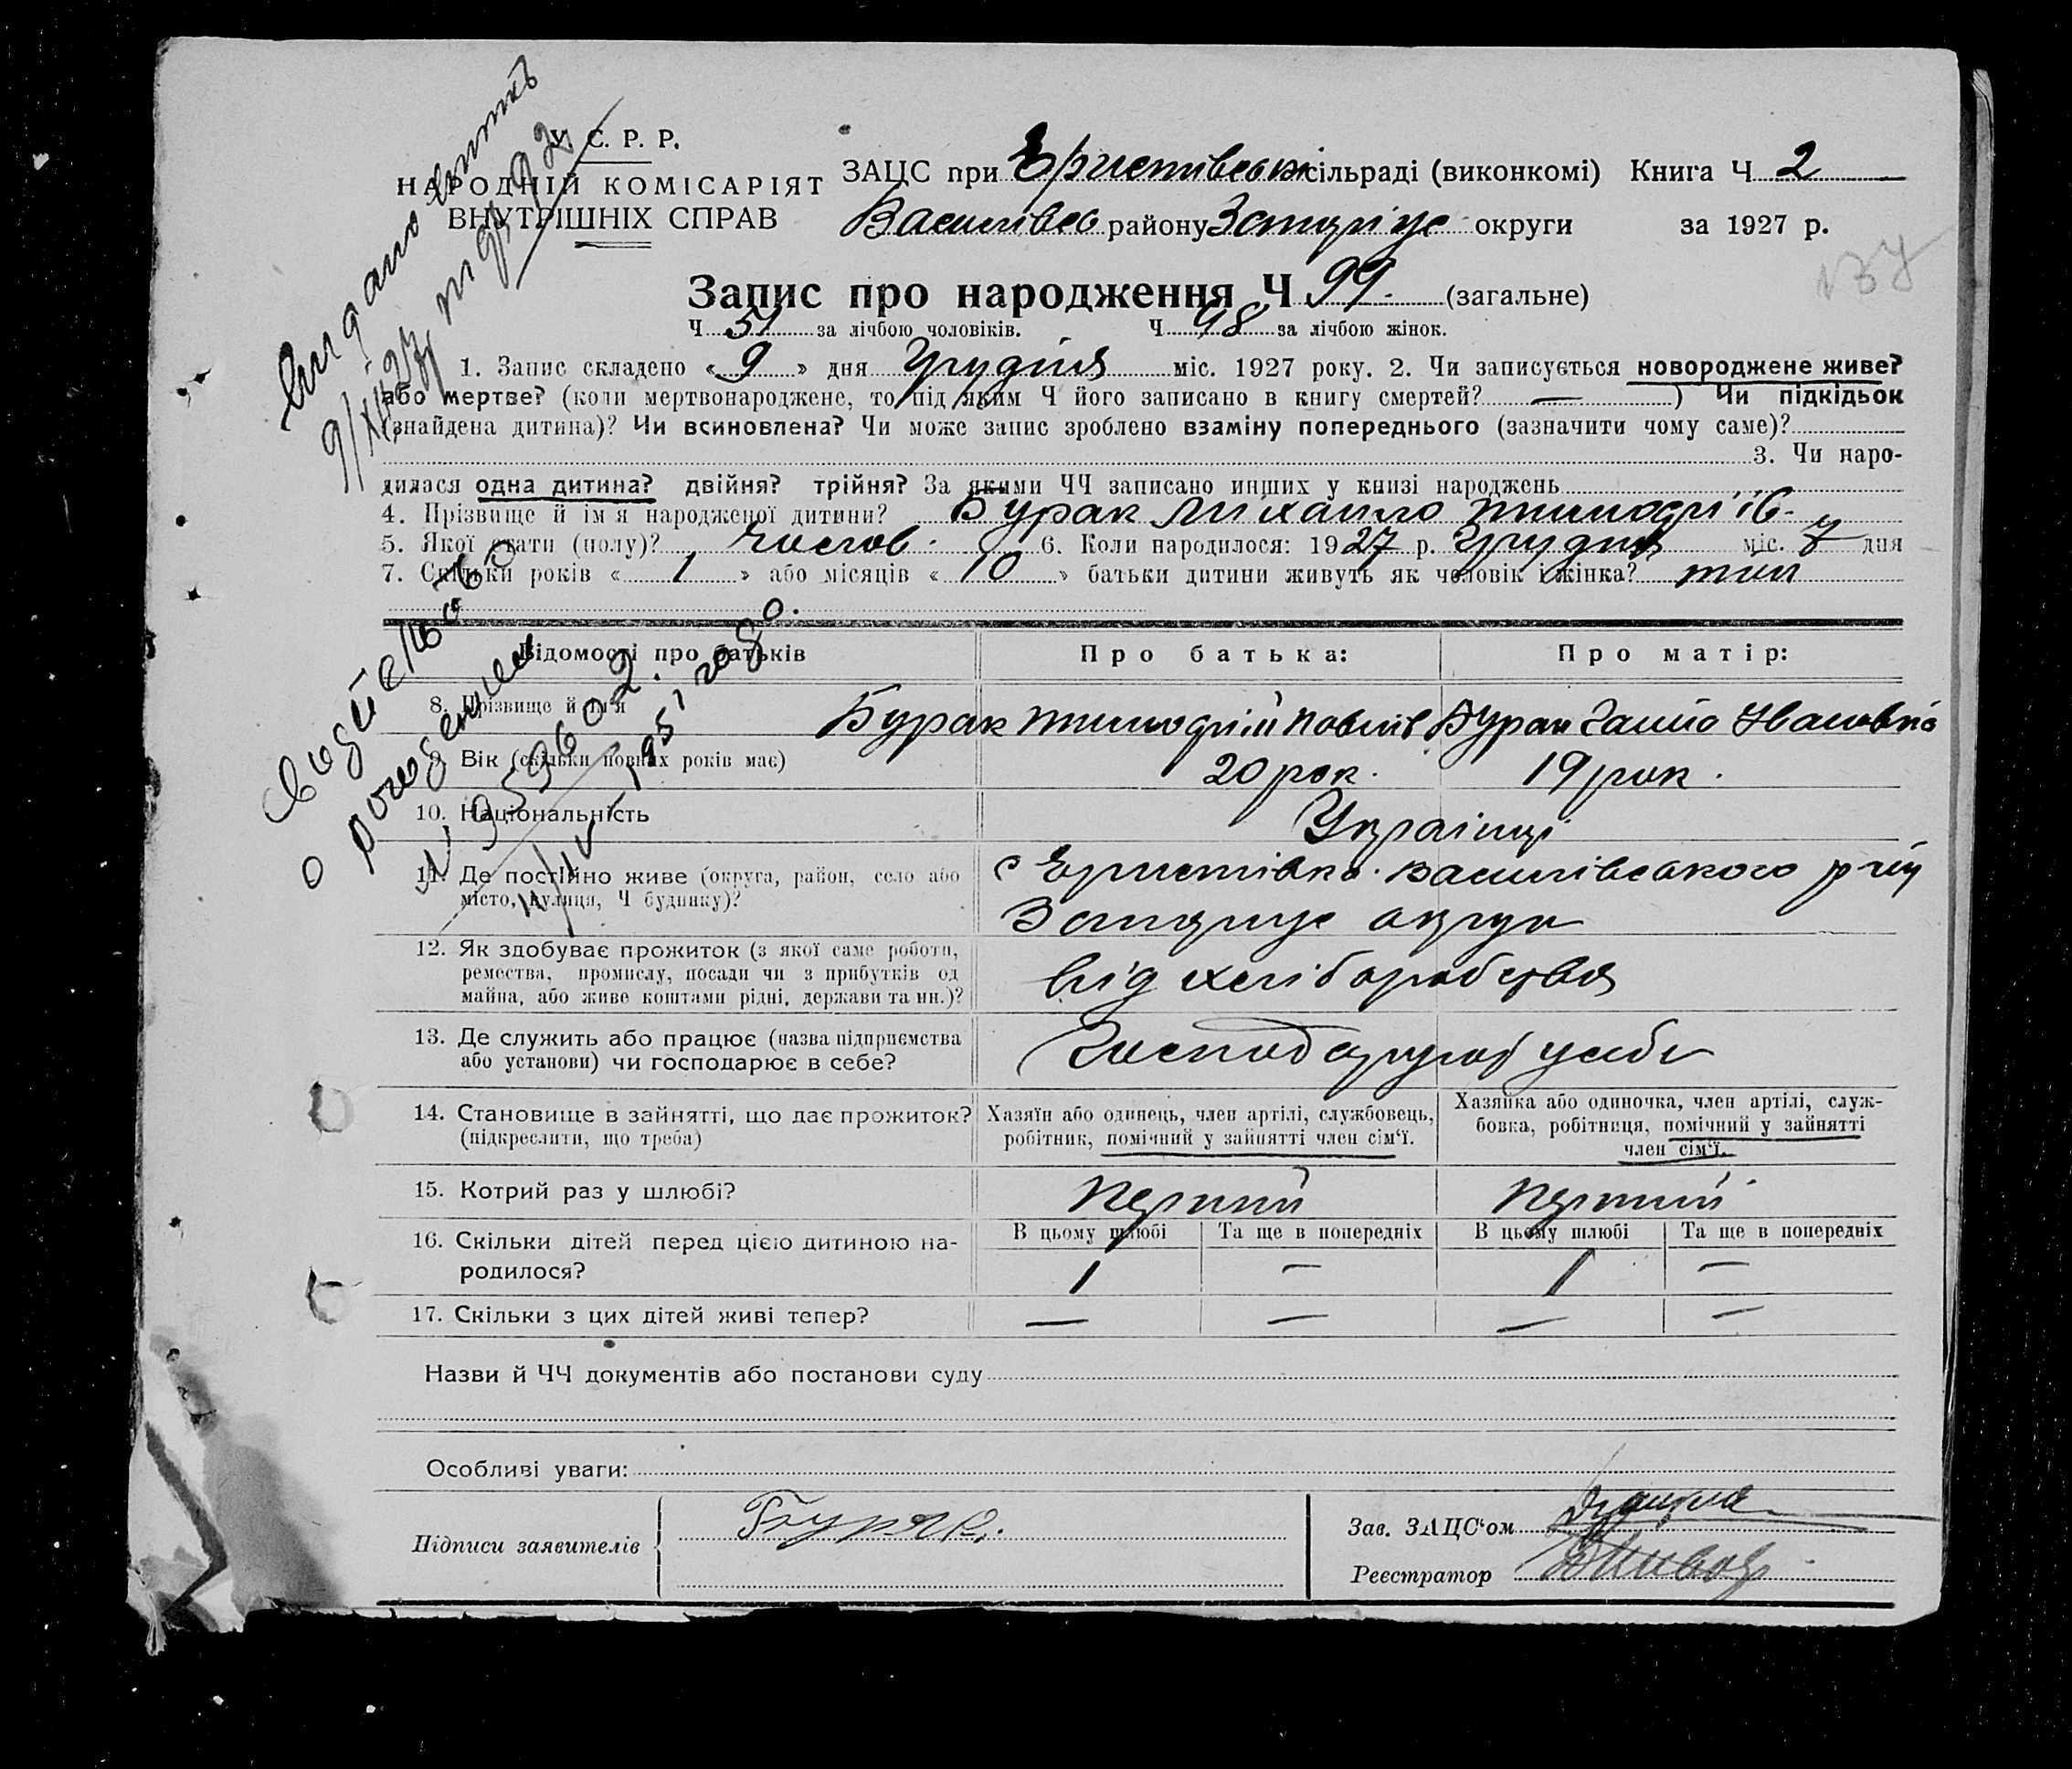 У. С. Р. Р.
НАРОДНІЙ КОМІСАРІЯТ
ВНУТРІШНІХ СПРАВ
ЗАЦС при Єристівські сільраді (виконкомі) Книга Ч 2
Василівсв району Запоріже округи за 1927 р.
Запис про народження Ч 99. (загальне)
Ч 51 за лічбою чоловіків. Ч 48 за лічбою жінок.
1. Запис складено « 9 » дня Грудня міс. 1927 року. 2. Чи записується новороджене живе?
або мертве? (коли мертвонароджене, то під яким Ч його записано в книгу смертей? — ) Чи підкідьок
(знайдена дитина)? Чи всиновлена? Чи може запис зроблено взаміну попереднього (зазначити чому саме)?
3. Чи наро-
дилася одна дитина? двійня? трійня? За якими ЧЧ записано инших у книзі народжень
4. Прізвище й ім'я народженої дитини? Бурак Михайло Тимофіїв.
5. Якої стати (полу)? чолов. 6. Коли народилося: 1927 р. Грудня міс. 7 дня
7. Скільки років « 1 » або місяців « 10 » батьки дитини живуть як чоловік і жінка?
Відомості про батьків Про батька: Про матір:
8. Прізвище й ім'я Бурак Тимофій Павлів Бурак Ганна Івановна
9. Вік (скільки повних років має) 20 рок. 19 рок.
10. Національність Українці
11. Де постійно живе (округа, район, село або місто, вулиця, Ч будинку)? с Єристівка. Василівського рай
Запоріже округи
12. Як здобуває прожиток (з якої саме роботи,
ремества, промислу, посади чи з прибутків од
майна, або живе коштами рідні, держави та ин.)? від хліборобства
13. Де служить або працює (назва підприємства
або установи) чи господарює в себе? Господарюють у себе
14. Становище в зайнятті, що дає прожиток?
(підкреслити, що треба)
Хазяїн або одинець, член артілі, службовець,
робітник, помічний у зайнятті член сім'ї.
Хазяйка або одиночка, член артілі, служ-
бовка, робітниця, помічний у зайнятті
член сім'ї.
15. Котрий раз у шлюбі? Перший Перший
В цьому шлюбі Та ще в попередніх В цьому шлюбі Та ще в попередніх
16. Скільки дітей перед цією дитиною на-
родилося? 1 — 1 —
17. Скільки з цих дітей живі тепер? — — — —
Назви й ЧЧ документів або постанови суду
Особливі уваги:
Підписи заявителів Бурак.
Зав. ЗАЦС'ом
Реєстратор
Видано витяг
9/XII 27
Свидетельство
о рождении
№ 959602.
1951 года.